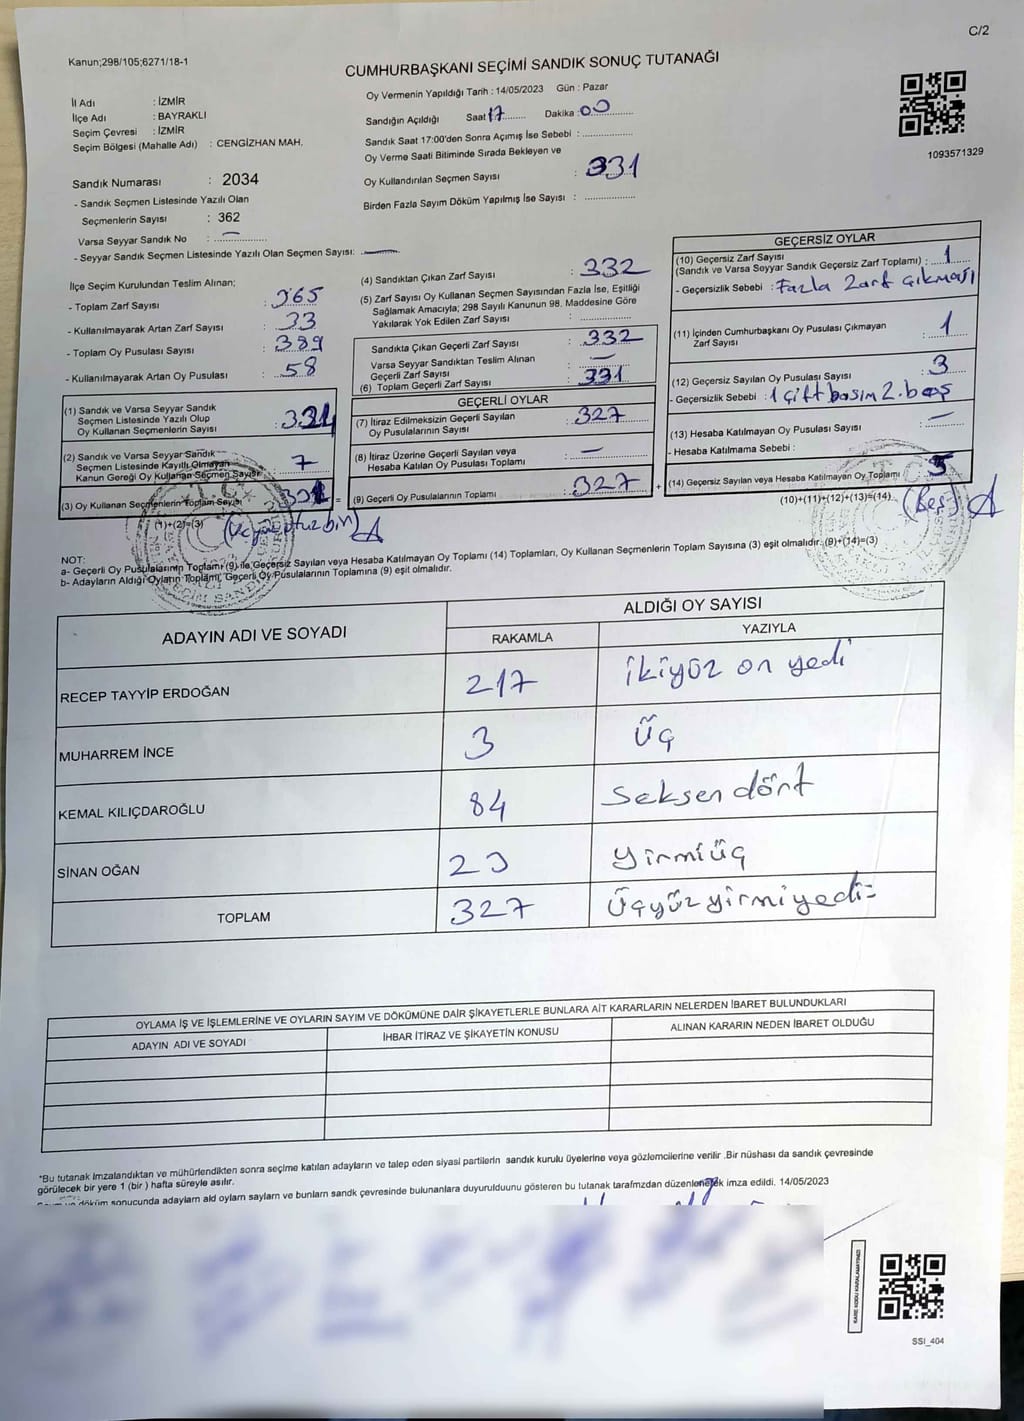 C/2
Kanun;298/105;6271/18-1
CUMHURBAŞKANI SEÇİMİ SANDIK SONUÇ TUTANAĞI
İl Adı : İZMİR
İlçe Adı : BAYRAKLI
Seçim Çevresi : İZMİR
Seçim Bölgesi (Mahalle Adı) : CENGİZHAN MAH.
Sandık Numarası : 2034
- Sandık Seçmen Listesinde Yazılı Olan
Seçmenlerin Sayısı : 362
Varsa Seyyar Sandık No : —
- Seyyar Sandık Seçmen Listesinde Yazılı Olan Seçmen Sayısı: —
Oy Vermenin Yapıldığı Tarih : 14/05/2023 Gün : Pazar
Sandığın Açıldığı Saat 17 Dakika : 00
Sandık Saat 17:00'den Sonra Açımış İse Sebebi : ..............
Oy Verme Saati Bitiminde Sırada Bekleyen ve
Oy Kullandırılan Seçmen Sayısı : 331
Birden Fazla Sayım Döküm Yapılmış İse Sayısı : ..............
1093571329
İlçe Seçim Kurulundan Teslim Alınan;
- Toplam Zarf Sayısı : 365
- Kullanılmayarak Artan Zarf Sayısı : 33
- Toplam Oy Pusulası Sayısı : 389
- Kullanılmayarak Artan Oy Pusulası : 58
(1) Sandık ve Varsa Seyyar Sandık
Seçmen Listesinde Yazılı Olup
Oy Kullanan Seçmenlerin Sayısı :
(2) Sandık ve Varsa Seyyar Sandık
Seçmen Listesinde Kayıtlı Olmayan
Kanun Gereği Oy Kullanan Seçmen Sayısı : 7
(3) Oy Kullanan Seçmenlerin Toplam Sayısı =
(1)+(2)=(3) (Üçyüzotuzbir)
(4) Sandıktan Çıkan Zarf Sayısı : 332
(5) Zarf Sayısı Oy Kullanan Seçmen Sayısından Fazla İse, Eşitliği
Sağlamak Amacıyla; 298 Sayılı Kanunun 98. Maddesine Göre
Yakılarak Yok Edilen Zarf Sayısı : ..............
Sandıkta Çıkan Geçerli Zarf Sayısı : 332
Varsa Seyyar Sandıktan Teslim Alınan
Geçerli Zarf Sayısı : —
(6) Toplam Geçerli Zarf Sayısı : 331
GEÇERLİ OYLAR
(7) İtiraz Edilmeksizin Geçerli Sayılan
Oy Pusulalarının Sayısı : 327
(8) İtiraz Üzerine Geçerli Sayılan veya
Hesaba Katılan Oy Pusulası Toplamı : —
(9) Geçerli Oy Pusulalarının Toplamı : 327 +
GEÇERSİZ OYLAR
(10) Geçersiz Zarf Sayısı
(Sandık ve Varsa Seyyar Sandık Geçersiz Zarf Toplamı) : 1
- Geçersizlik Sebebi : Fazla zarf çıkması
(11) İçinden Cumhurbaşkanı Oy Pusulası Çıkmayan
Zarf Sayısı : 1
(12) Geçersiz Sayılan Oy Pusulası Sayısı : 3
- Geçersizlik Sebebi : 1 çift basım 2. boş
(13) Hesaba Katılmayan Oy Pusulası Sayısı : —
- Hesaba Katılmama Sebebi :
(14) Geçersiz Sayılan veya Hesaba Katılmayan Oy Toplamı : 5
(10)+(11)+(12)+(13)=(14) (Beş)
NOT:
a- Geçerli Oy Pusulalarının Toplamı (9) ile Geçersiz Sayılan veya Hesaba Katılmayan Oy Toplamı (14) Toplamları, Oy Kullanan Seçmenlerin Toplam Sayısına (3) eşit olmalıdır. (9)+(14)=(3)
b- Adayların Aldığı Oyların Toplamı, Geçerli Oy Pusulalarının Toplamına (9) eşit olmalıdır.
ADAYIN ADI VE SOYADI
ALDIĞI OY SAYISI
RAKAMLA YAZIYLA
RECEP TAYYİP ERDOĞAN 217 ikiyüz on yedi
MUHARREM İNCE 3 üç
KEMAL KILIÇDAROĞLU 84 seksen dört
SİNAN OĞAN 23 yirmiüç
TOPLAM 327 üçyüzyirmiyedi
OYLAMA İŞ VE İŞLEMLERİNE VE OYLARIN SAYIM VE DÖKÜMÜNE DAİR ŞİKAYETLERLE BUNLARA AİT KARARLARIN NELERDEN İBARET BULUNDUKLARI
ADAYIN ADI VE SOYADI İHBAR İTİRAZ VE ŞİKAYETİN KONUSU ALINAN KARARIN NEDEN İBARET OLDUĞU
*Bu tutanak imzalandıktan ve mühürlendikten sonra seçime katılan adayların ve talep eden siyasi partilerin sandık kurulu üyelerine veya gözlemcilerine verilir .Bir nüshası da sandık çevresinde
görülecek bir yere 1 (bir ) hafta süreyle asılır.
döküm sonucunda adayların ald oyların sayların ve bunların sandk çevresinde bulunanlara duyurulduunu gösteren bu tutanak tarafmzdan düzenlenerek imza edildi. 14/05/2023
KARE KODU KARALAMAYINIZ!
SSI_404